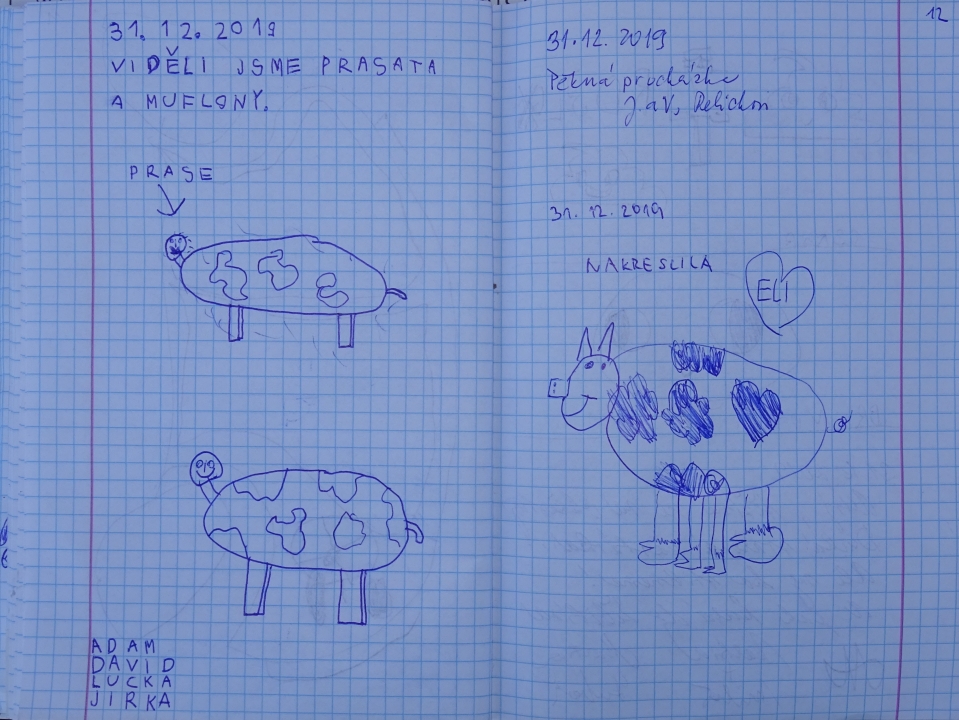 31. 12. 2019
VIDĚLI JSME PRASATA
A MUFLONY.
PRASE
ADAM
DAVID
LUCKA
JIRKA
12
31.12. 2019
Pěkná procházka
J. a V,
31. 12. 2019
NAKRESLILA
ELI